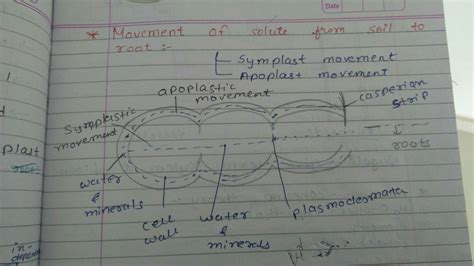 Date
* Movement of solute from soil to
root :-
Symplast movement
Apoplast movement
apoplastic
movement
casperian
strip
Symplastic
movement
plast
roots
water
&
minerals
cell
wall
water
&
minerals
plasmodesmata
in-